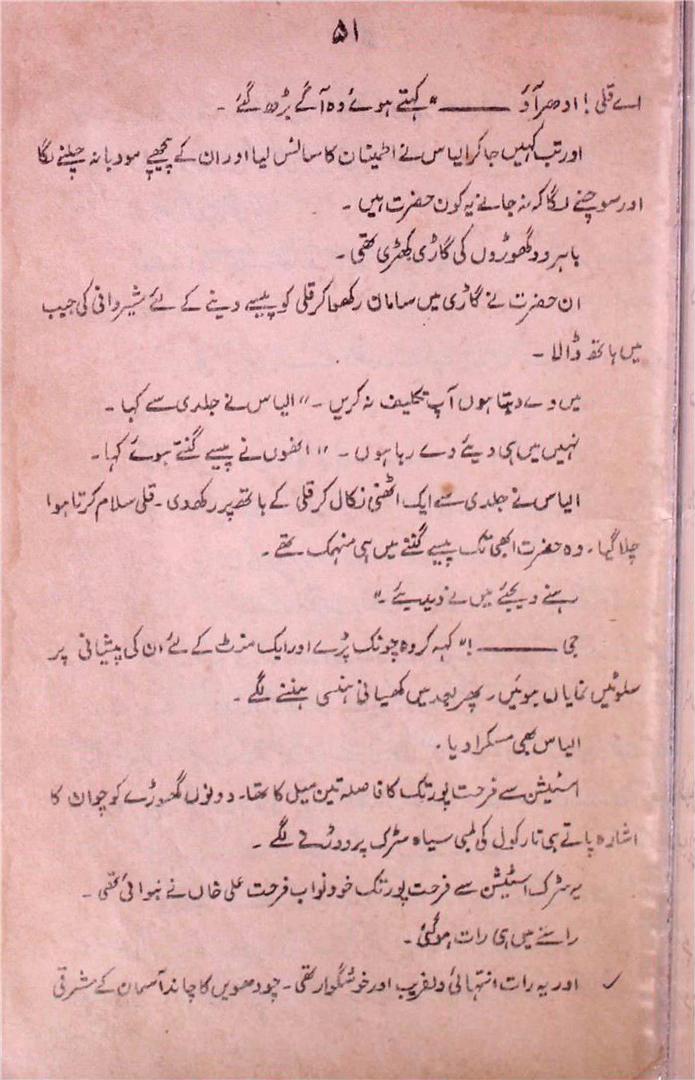 ۵۱
اے قلی! ادھر آؤ ـــــــ" کہتے ہوئے وہ آگے بڑھ گئے ۔
اور تب کہیں جا کر الیاس نے اطمینان کا سانس لیا اور ان کے پیچھے مودبانہ چلنے لگا
اور سوچنے لگا کہ نہ جانے یہ کون حضرت ہیں ۔
باہر دو گھوڑوں کی گاڑی کھڑی تھی ۔
ان حضرت نے گاڑی میں سامان رکھوا کر قلی کو پیسے دینے کے لئے شیروانی کی جیب
میں ہاتھ ڈالا ۔
میں دے دیتا ہوں آپ تکلیف نہ کریں ۔" الیاس نے جلدی سے کہا ۔
نہیں میں ہی دیئے دے رہا ہوں ۔" انھوں نے پیسے گنتے ہوئے کہا ۔
الیاس نے جلدی سے ایک اٹھنی نکال کر قلی کے ہاتھ پر رکھدی ۔ قلی سلام کرتا ہوا
چلا گیا ۔ وہ حضرت ابھی تک پیسے گننے میں ہی منہمک تھے ۔
رہنے دیجئے میں نے دیدیئے ۔"
جی ـــــــ !" کہہ کر وہ چونک پڑے اور ایک منٹ کے لئے ان کی پیشانی پر
سلوٹیں نمایاں ہوئیں ۔ پھر بعد میں کھیانی ہنسی ہنسنے لگے ۔
الیاس بھی مسکرا دیا ۔
اسٹیشن سے فرحت پور تک کا فاصلہ تین میل کا تھا ۔ دونوں گھوڑے کوچوان کا
اشارہ پاتے ہی تارکول کی لمبی سیاہ سڑک پر دوڑنے لگے ۔
یہ سڑک اسٹیشن سے فرحت پور تک خود نواب فرحت علی خاں نے بنوائی تھی ۔
راستے میں ہی رات ہو گئی ۔
اور یہ رات انتہائی دلفریب اور خوشگوار تھی ۔ چودھویں کا چاند آسمان کے مشرقی